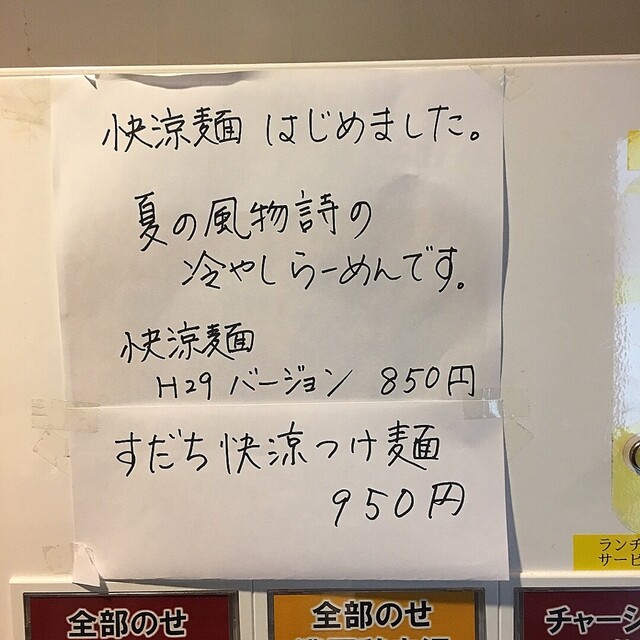 快涼麺 はじめました。
夏の風物詩の
冷やしらーめんです。
快涼麺
H29 バージョン 850円
すだち快涼つけ麺
950円
ランチ
サービ
全部のせ
全部のせ
チャーシ